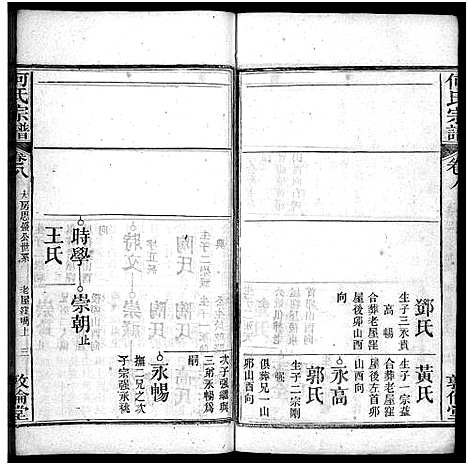 何氏宗譜
卷八
敦倫堂
鄧氏
生子二永貴
高暢
合葬老屋窪
屋後卯山酉
向
黃氏
生子一宗益
合葬老屋窪
屋後左首卯
山酉向
永高
郭氏
生子二宗剛
俱葬兄一山
卯山酉向
時學
崇朝止
王氏
次子強繼與
三弟永暢爲
永暢
撫二兄之次
子宗強永祧
何氏宗譜
卷八
大房思盛公世系
老屋窪嘴上
三
敦倫堂